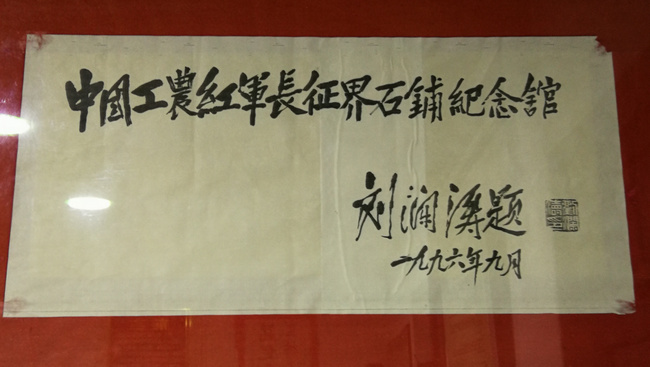 中国工農紅軍長征界石鋪紀念館
刘澜涛题
一九九六年九月